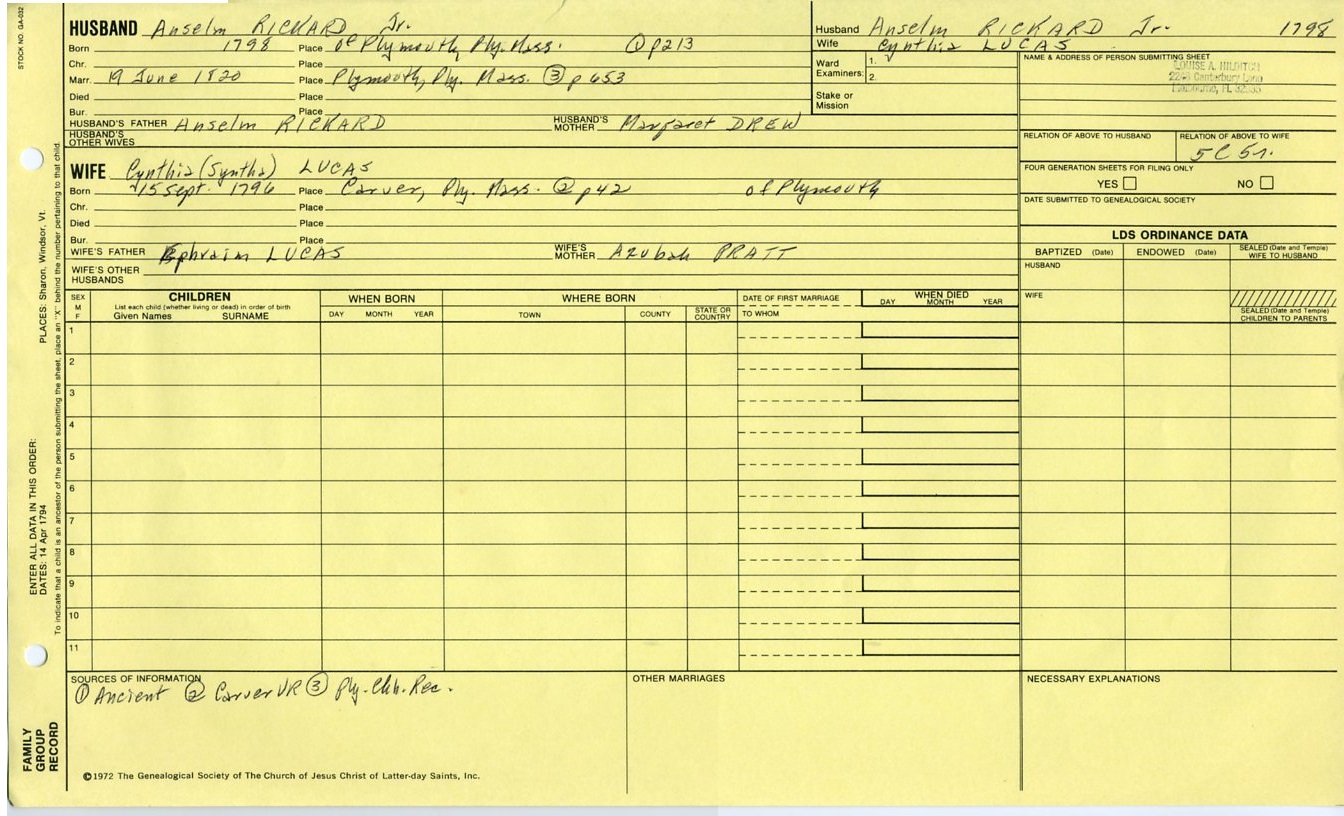 STOCK NO. GA-032
HUSBAND Anselm RICKARD Jr.
Born 1798 Place of Plymouth, Ply. Mass. ① p213
Chr. Place
Marr. 19 June 1820 Place Plymouth, Ply. Mass. ③ p 653
Died Place
Bur. Place
HUSBAND'S FATHER Anselm RICKARD HUSBAND'S MOTHER Margaret DREW
HUSBAND'S OTHER WIVES
WIFE Cynthia (Syntha) LUCAS
Born 15 Sept. 1796 Place Carver, Ply. Mass. ② p42 of Plymouth
Chr. Place
Died Place
Bur. Place
WIFE'S FATHER Ephraim LUCAS WIFE'S MOTHER Azubah PRATT
WIFE'S OTHER HUSBANDS
Husband Anselm RICKARD Jr. 1798
Wife Cynthia LUCAS
Ward Examiners: 1.
2.
Stake or Mission
NAME & ADDRESS OF PERSON SUBMITTING SHEET
LOUISE A. HILDITCH
Canterbury Lane
RELATION OF ABOVE TO HUSBAND RELATION OF ABOVE TO WIFE
5C 5r.
FOUR GENERATION SHEETS FOR FILING ONLY
YES NO
DATE SUBMITTED TO GENEALOGICAL SOCIETY
LDS ORDINANCE DATA
BAPTIZED (Date) ENDOWED (Date) SEALED (Date and Temple) WIFE TO HUSBAND
HUSBAND
WIFE
SEALED (Date and Temple) CHILDREN TO PARENTS
SEX M F CHILDREN WHEN BORN WHERE BORN DATE OF FIRST MARRIAGE WHEN DIED
List each child (whether living or dead) in order of birth
Given Names SURNAME DAY MONTH YEAR TOWN COUNTY STATE OR COUNTRY TO WHOM DAY MONTH YEAR
1
2
3
4
5
6
7
8
9
10
11
SOURCES OF INFORMATION OTHER MARRIAGES NECESSARY EXPLANATIONS
① Ancient ② Carver VR ③ Ply. Chh. Rec.
©1972 The Genealogical Society of The Church of Jesus Christ of Latter-day Saints, Inc.
FAMILY GROUP RECORD
ENTER ALL DATA IN THIS ORDER:
DATES: 14 Apr 1794 PLACES: Sharon, Windsor, Vt.
To indicate that a child is an ancestor of the person submitting the sheet, place an "X" behind the number pertaining to that child.